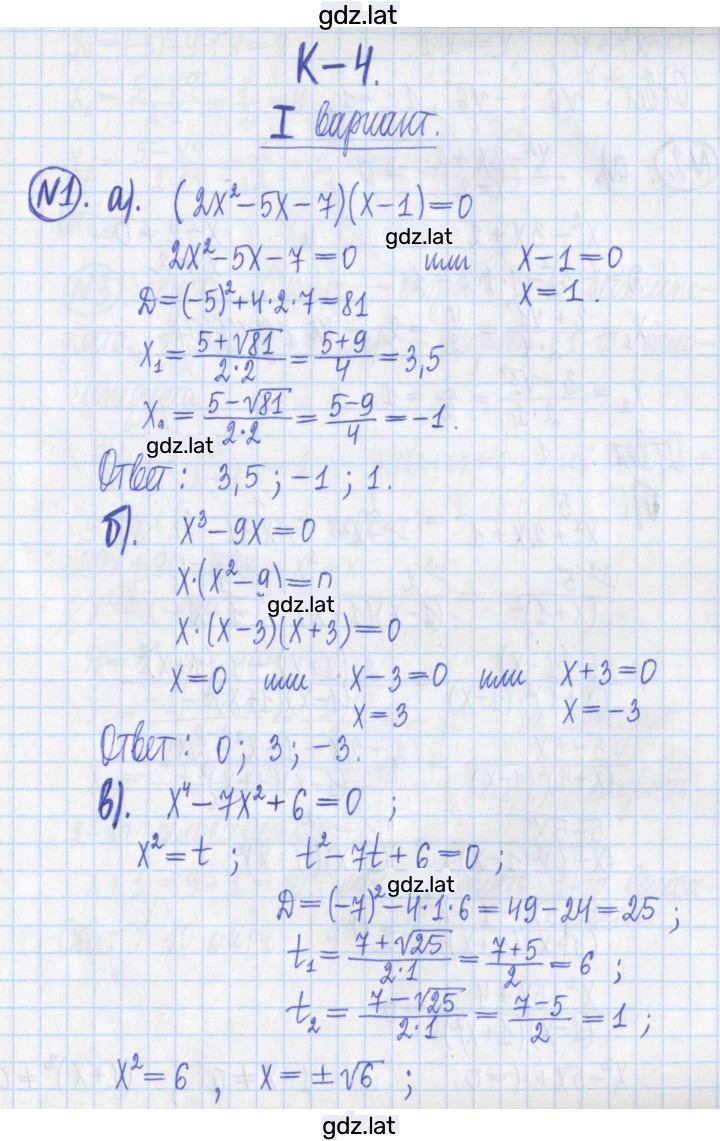 gdz.lat
К-4.
I вариант.
№1. а). (2x²-5x-7)(x-1)=0
gdz.lat
2x²-5x-7=0 или x-1=0
D=(-5)²+4·2·7=81 x=1.
x₁=(5+√81)/(2·2)=(5+9)/4=3,5
x₂=(5-√81)/(2·2)=(5-9)/4=-1.
gdz.lat
Ответ: 3,5; -1; 1.
б). x³-9x=0
x·(x²-9)=0
gdz.lat
x·(x-3)(x+3)=0
x=0 или x-3=0 или x+3=0
x=3 x=-3
Ответ: 0; 3; -3.
в). x⁴-7x²+6=0;
x²=t; t²-7t+6=0;
gdz.lat
D=(-7)²-4·1·6=49-24=25;
t₁=(7+√25)/(2·1)=(7+5)/2=6;
t₂=(7-√25)/(2·1)=(7-5)/2=1;
x²=6, x=±√6;
gdz.lat